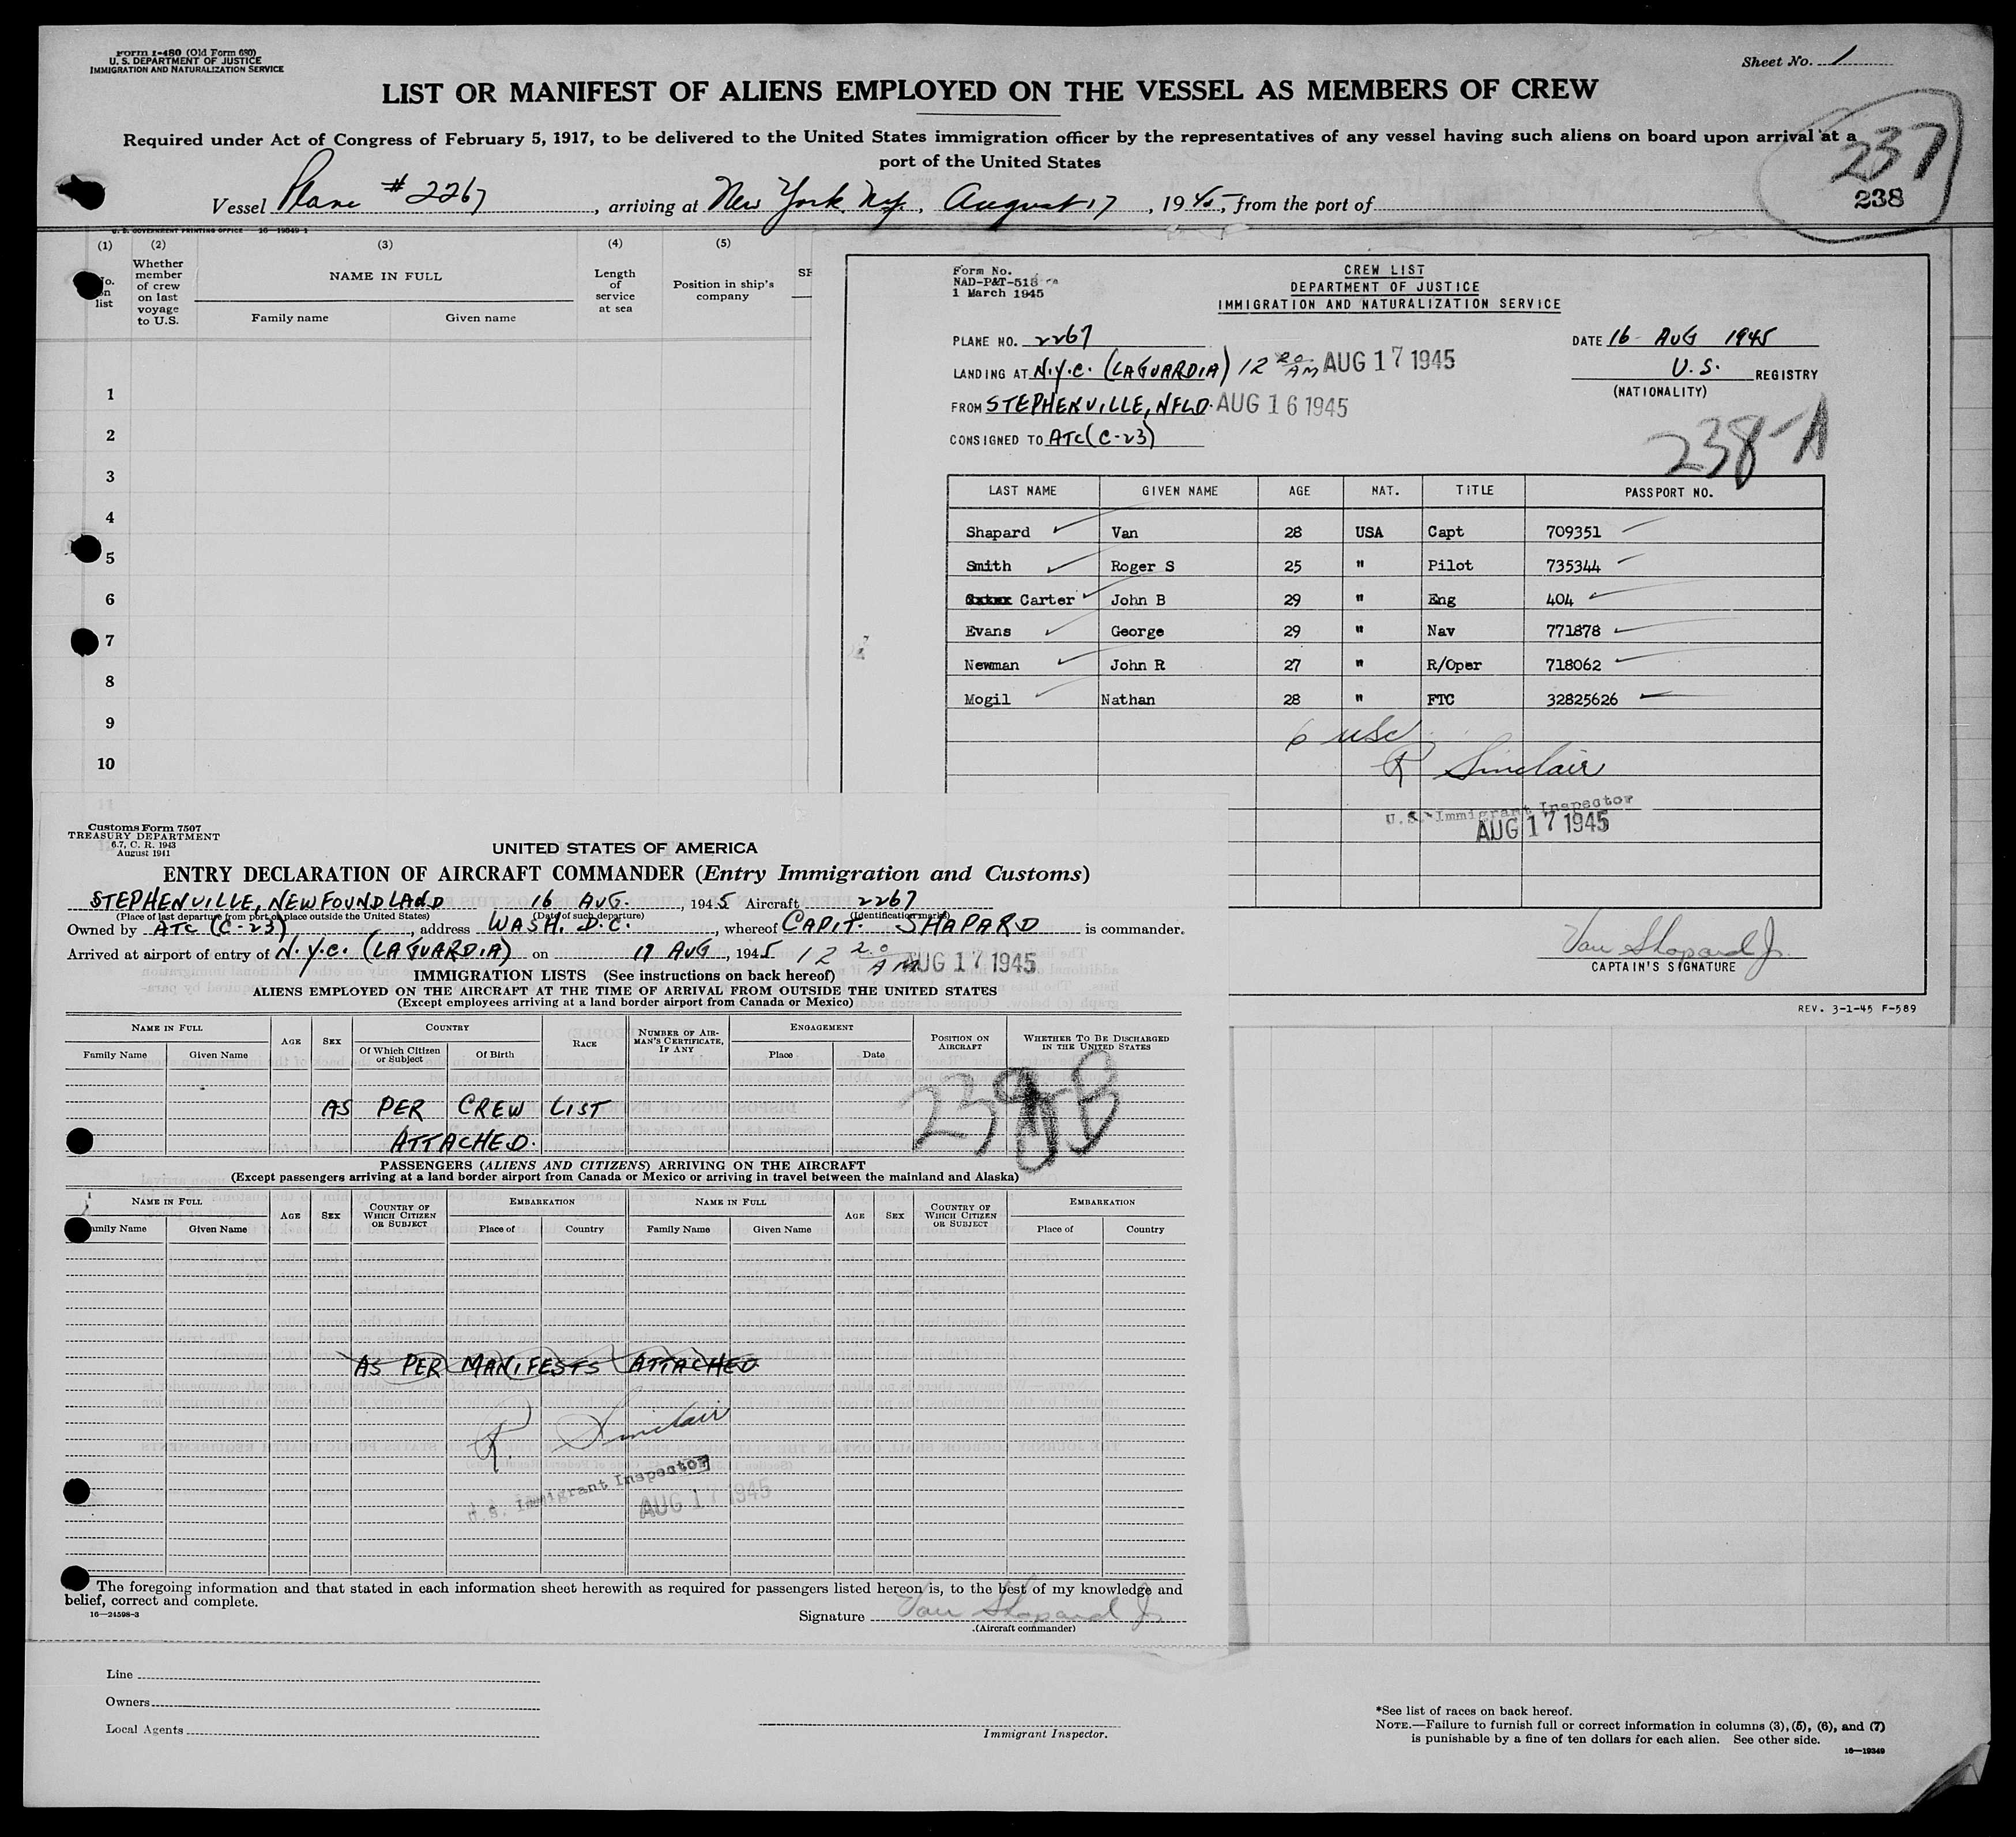 Form I-480 (Old Form 680)
U. S. DEPARTMENT OF JUSTICE
IMMIGRATION AND NATURALIZATION SERVICE
Sheet No. 1
LIST OR MANIFEST OF ALIENS EMPLOYED ON THE VESSEL AS MEMBERS OF CREW
Required under Act of Congress of February 5, 1917, to be delivered to the United States immigration officer by the representatives of any vessel having such aliens on board upon arrival at a
port of the United States
237
238
Vessel Plane # 2267, arriving at New York, N.Y., August 17, 1945, from the port of
U. S. GOVERNMENT PRINTING OFFICE 16-19349-1
(1) (2) (3) (4) (5)
No. on list
Whether member of crew on last voyage to U.S.
NAME IN FULL
Family name Given name
Length of service at sea
Position in ship's company
1
2
3
4
5
6
7
8
9
10
Form No.
NAD-P&T-518
1 March 1945
CREW LIST
DEPARTMENT OF JUSTICE
IMMIGRATION AND NATURALIZATION SERVICE
PLANE NO. 2267 DATE 16 AUG 1945
LANDING AT N.Y.C. (LAGUARDIA) 12 20 AM AUG 17 1945 U.S. REGISTRY
(NATIONALITY)
FROM STEPHENVILLE, NFLD. AUG 16 1945
CONSIGNED TO ATC (C-23)
238-A
LAST NAME GIVEN NAME AGE NAT. TITLE PASSPORT NO.
Shapard Van 28 USA Capt 709351
Smith Roger S 25 " Pilot 735344
Carter John B 29 " Eng 404
Evans George 29 " Nav 771878
Newman John R 27 " R/Oper 718062
Mogil Nathan 28 " FTC 32825626
6 USC
R Sinclair
U.S. Immigrant Inspector
AUG 17 1945
Van Shapard Jr.
CAPTAIN'S SIGNATURE
REV. 3-1-45 F-589
Customs Form 7507
TREASURY DEPARTMENT
6.7, C. R. 1943
August 1941
UNITED STATES OF AMERICA
ENTRY DECLARATION OF AIRCRAFT COMMANDER (Entry Immigration and Customs)
STEPHENVILLE, NEWFOUNDLAND 16 AUG., 1945 Aircraft 2267
(Place of last departure from port or place outside the United States) (Date of such departure) (Identification marks)
Owned by ATC (C-23), address WASH. D.C., whereof CAPT. SHAPARD is commander.
Arrived at airport of entry of N.Y.C. (LAGUARDIA) on 17 AUG, 1945 12 20 AM AUG 17 1945
IMMIGRATION LISTS (See instructions on back hereof)
ALIENS EMPLOYED ON THE AIRCRAFT AT THE TIME OF ARRIVAL FROM OUTSIDE THE UNITED STATES
(Except employees arriving at a land border airport from Canada or Mexico)
NAME IN FULL AGE SEX COUNTRY RACE NUMBER OF AIRMAN'S CERTIFICATE, IF ANY ENGAGEMENT POSITION ON AIRCRAFT WHETHER TO BE DISCHARGED IN THE UNITED STATES
Family Name Given Name Of Which Citizen or Subject Of Birth Place Date
AS PER CREW LIST
ATTACHED.
PASSENGERS (ALIENS AND CITIZENS) ARRIVING ON THE AIRCRAFT
(Except passengers arriving at a land border airport from Canada or Mexico or arriving in travel between the mainland and Alaska)
NAME IN FULL AGE SEX COUNTRY OF WHICH CITIZEN OR SUBJECT EMBARKATION NAME IN FULL AGE SEX COUNTRY OF WHICH CITIZEN OR SUBJECT EMBARKATION
Family Name Given Name Place of Country Family Name Given Name Place of Country
AS PER MANIFESTS ATTACHED
R. Sinclair
U.S. Immigrant Inspector
AUG 17 1945
The foregoing information and that stated in each information sheet herewith as required for passengers listed hereon is, to the best of my knowledge and
belief, correct and complete.
16-24598-3
Signature Van Shapard Jr
(Aircraft commander)
Line
Owners
Local Agents
Immigrant Inspector.
*See list of races on back hereof.
NOTE.—Failure to furnish full or correct information in columns (3), (5), (6), and (7)
is punishable by a fine of ten dollars for each alien. See other side.
16-19349